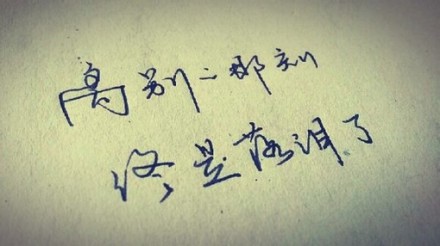 离别二那刻
终是落泪了